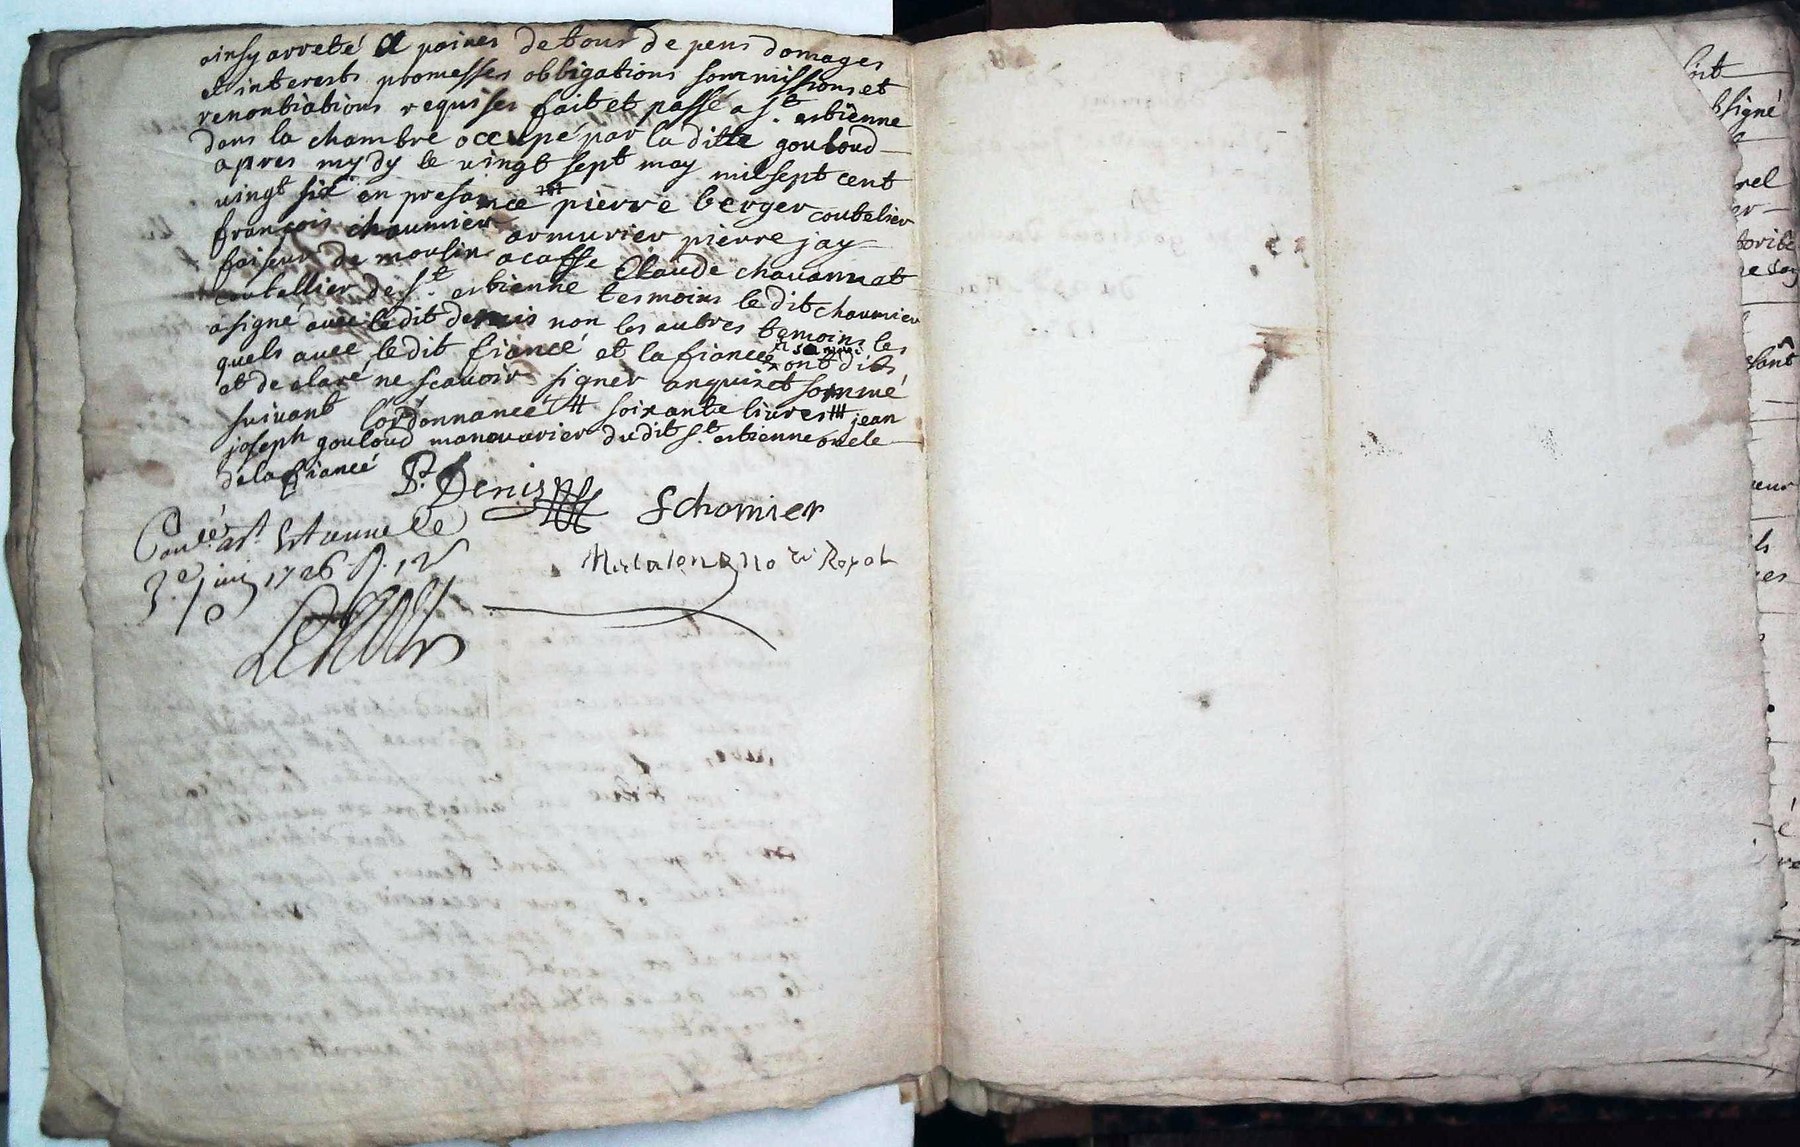 ainsy arreté a paines de tous depens domages
et interests promesses obligations sommissions et
renontiations requises fait et passé a st. estienne
dans la chambre occupé par la ditte gouloud
apres mydy le vingt sept may mil sept cent
vingt six en presance pierre berger coutelier
françois chaumier armurier pierre jay
faiseur de moulins acaffe Claude chavannat
coutellier de st. estienne tesmoins le dit chaumier
a signé avec le dit denis non les autres temoins les
quels avec le dit fiancé et la fiancée ont dit
et declaré ne scavoir signer anquis et sommé
suivant l'ordonnance # soixante livres ## jean
joseph gouloud manouvrier du dit st. estienne oncle
de la fiancé
Pr. Denis
fchomier
Coñlé a st. Estienne le
3e juin 1726 R. 12
no re Royal
sit
signé
rel
er